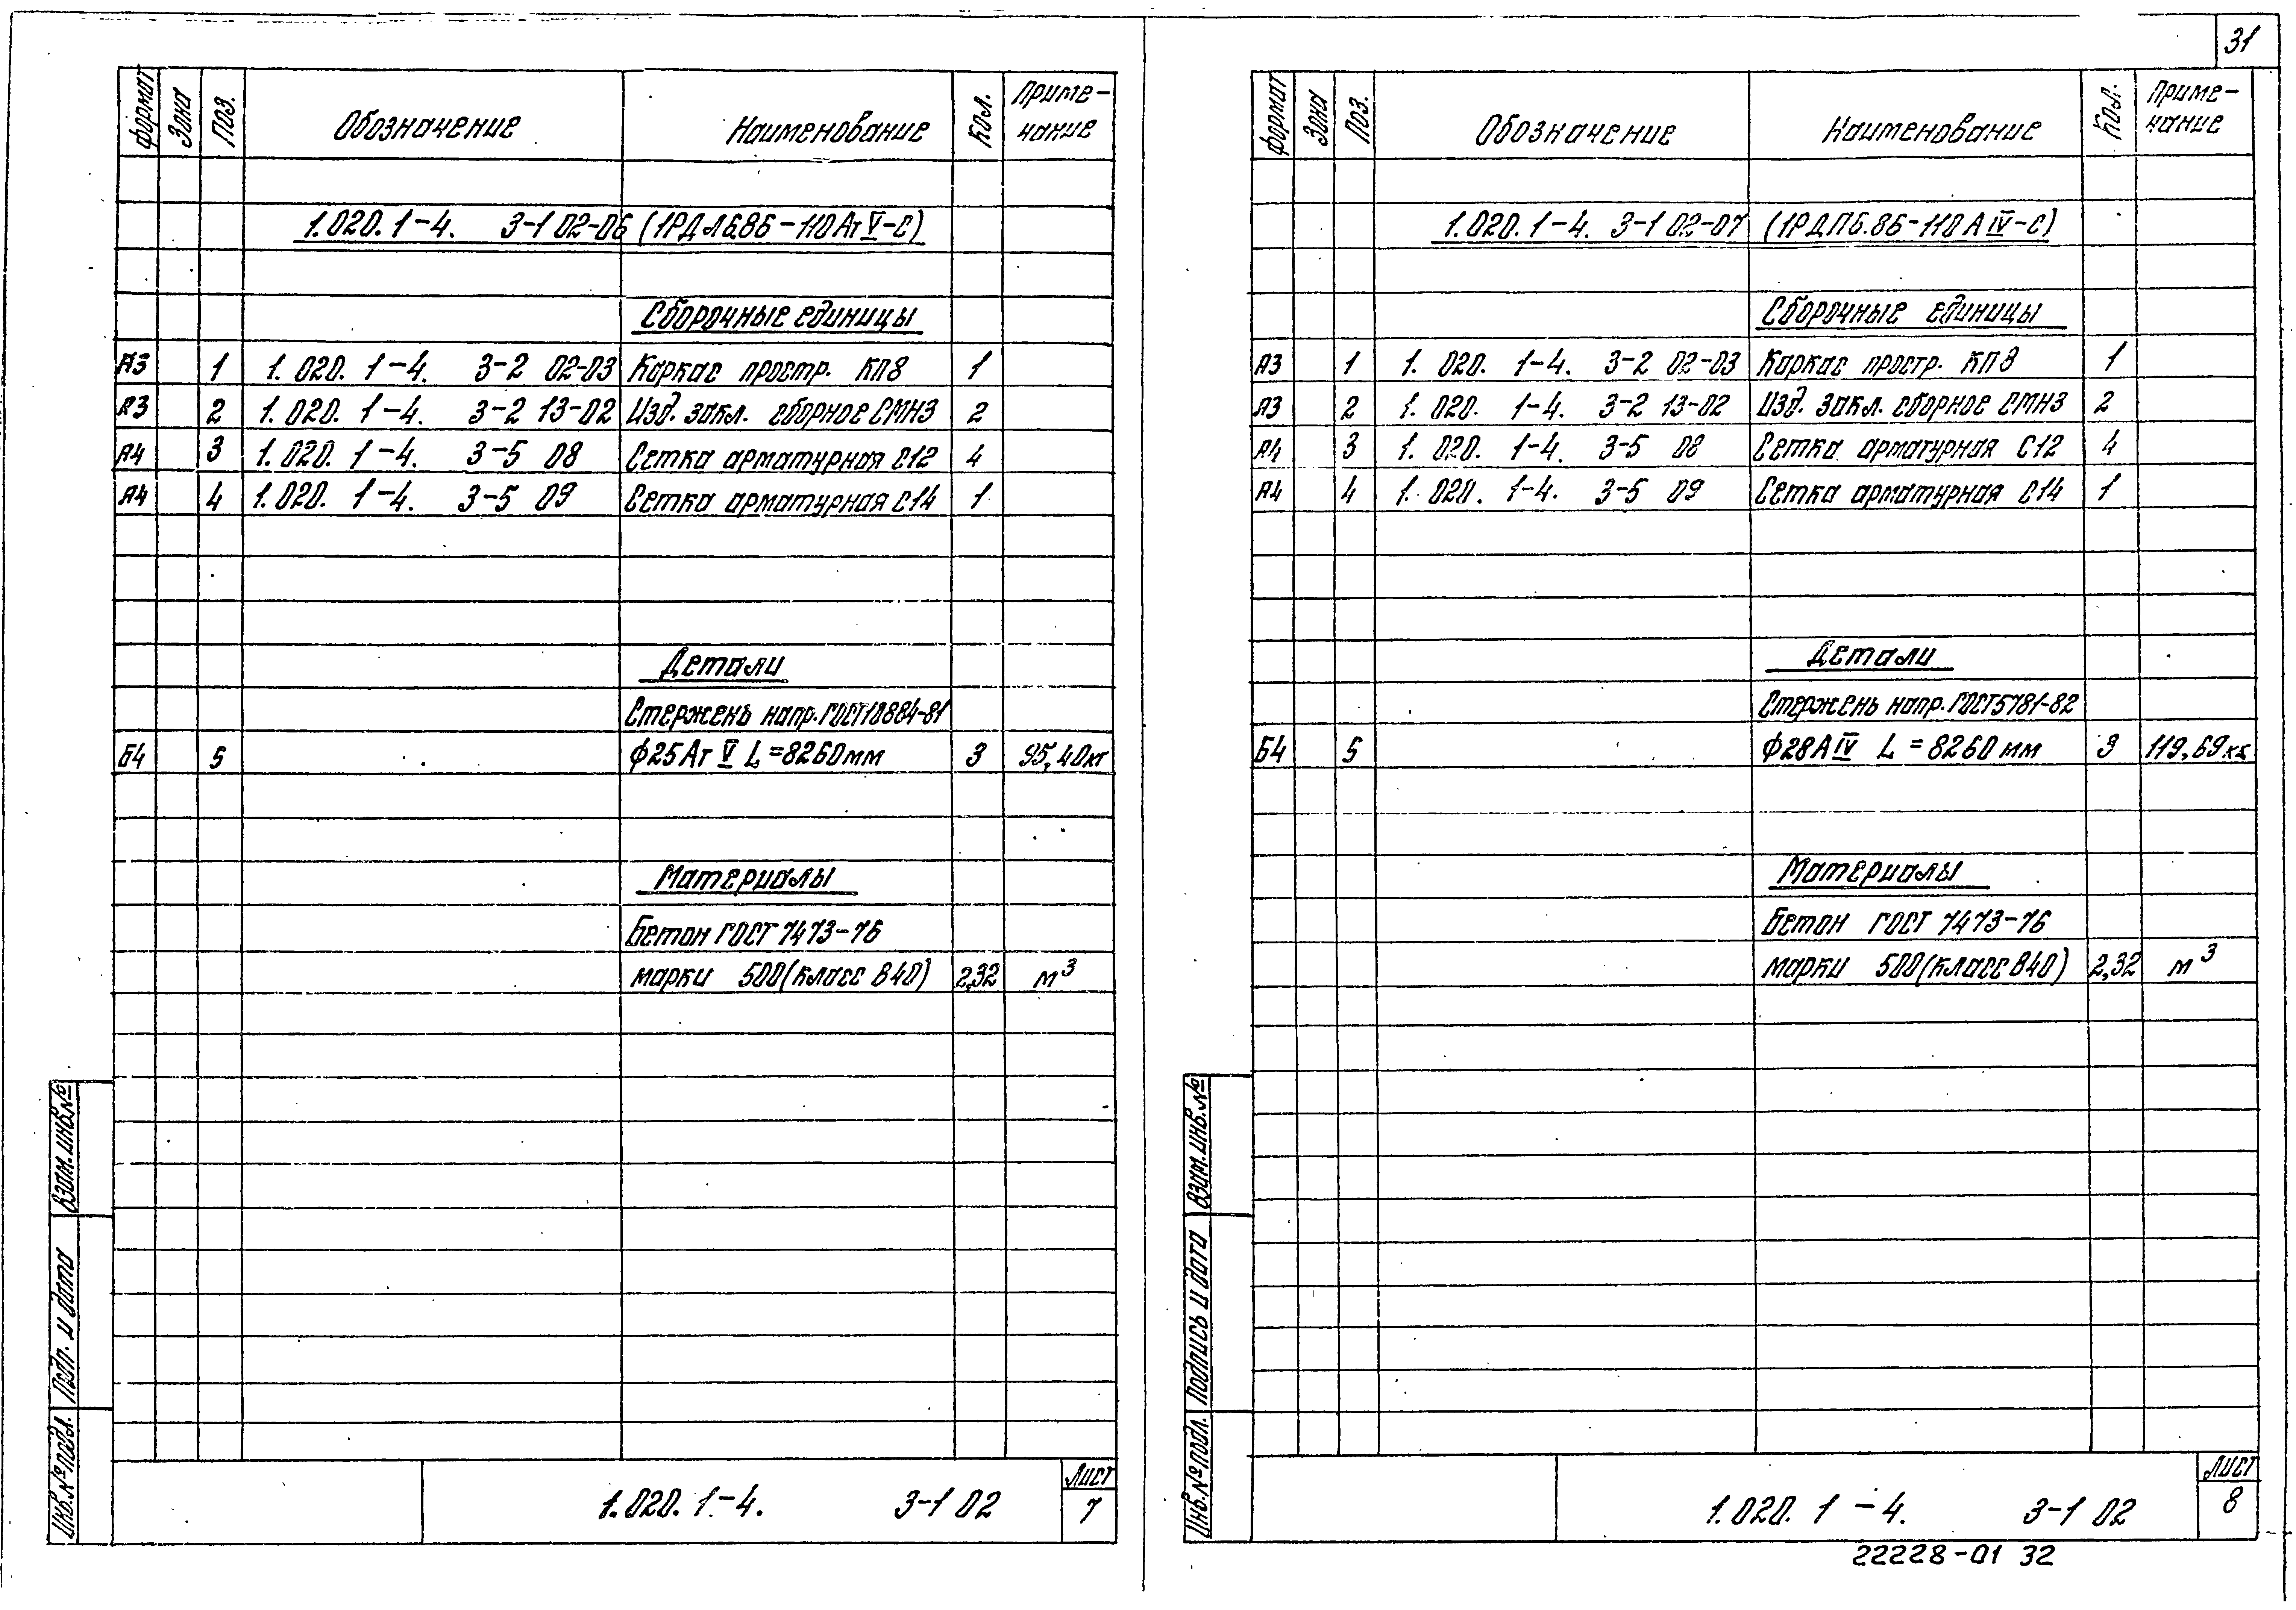 31
формат Зона Поз. Обозначение Наименование Кол. Приме-
чание
1.020.1-4. 3-1 02-06 (1РДЛ6.86-110Ат V-С)
Сборочные единицы
А3 1 1.020.1-4. 3-2 02-03 Каркас простр. КП8 1
А3 2 1.020.1-4. 3-2 13-02 Изд. закл. сборное СМН3 2
А4 3 1.020.1-4. 3-5 08 Сетка арматурная С12 4
А4 4 1.020.1-4. 3-5 09 Сетка арматурная С14 1
Детали
Стержень напр. ГОСТ 10884-81
Б4 5 ф25Ат V L=8260мм 3 95,40кг
Материалы
Бетон ГОСТ 7473-76
марки 500 (класс В40) 2,32 м3
Взам. инв. №
Подп. и дата
Инв. № подл.
1.020.1-4. 3-1 02
Лист
7
формат Зона Поз. Обозначение Наименование Кол. Приме-
чание
1.020.1-4. 3-1 02-07 (1РДП6.86-110А IV-С)
Сборочные единицы
А3 1 1.020.1-4. 3-2 02-03 Каркас простр. КП8 1
А3 2 1.020.1-4. 3-2 13-02 Изд. закл. сборное СМН3 2
А4 3 1.020.1-4. 3-5 08 Сетка арматурная С12 4
А4 4 1.020.1-4. 3-5 09 Сетка арматурная С14 1
Детали
Стержень напр. ГОСТ 5781-82
Б4 5 ф28А IV L=8260мм 3 119,69кг
Материалы
Бетон ГОСТ 7473-76
марки 500 (класс В40) 2,32 м3
Взам. инв. №
Подпись и дата
Инв. № подл.
1.020.1-4. 3-1 02
Лист
8
22228-01 32